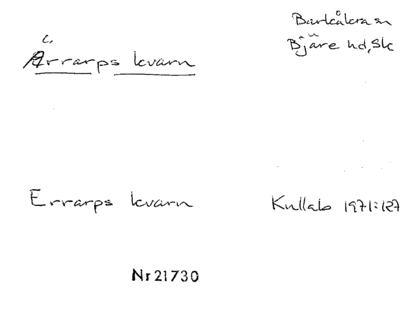 Barkåkra sn
Ärrarps kvarn
Bjäre hd, Sk
Errarps kvarn
Kullabo 1971:127
Nr 21730